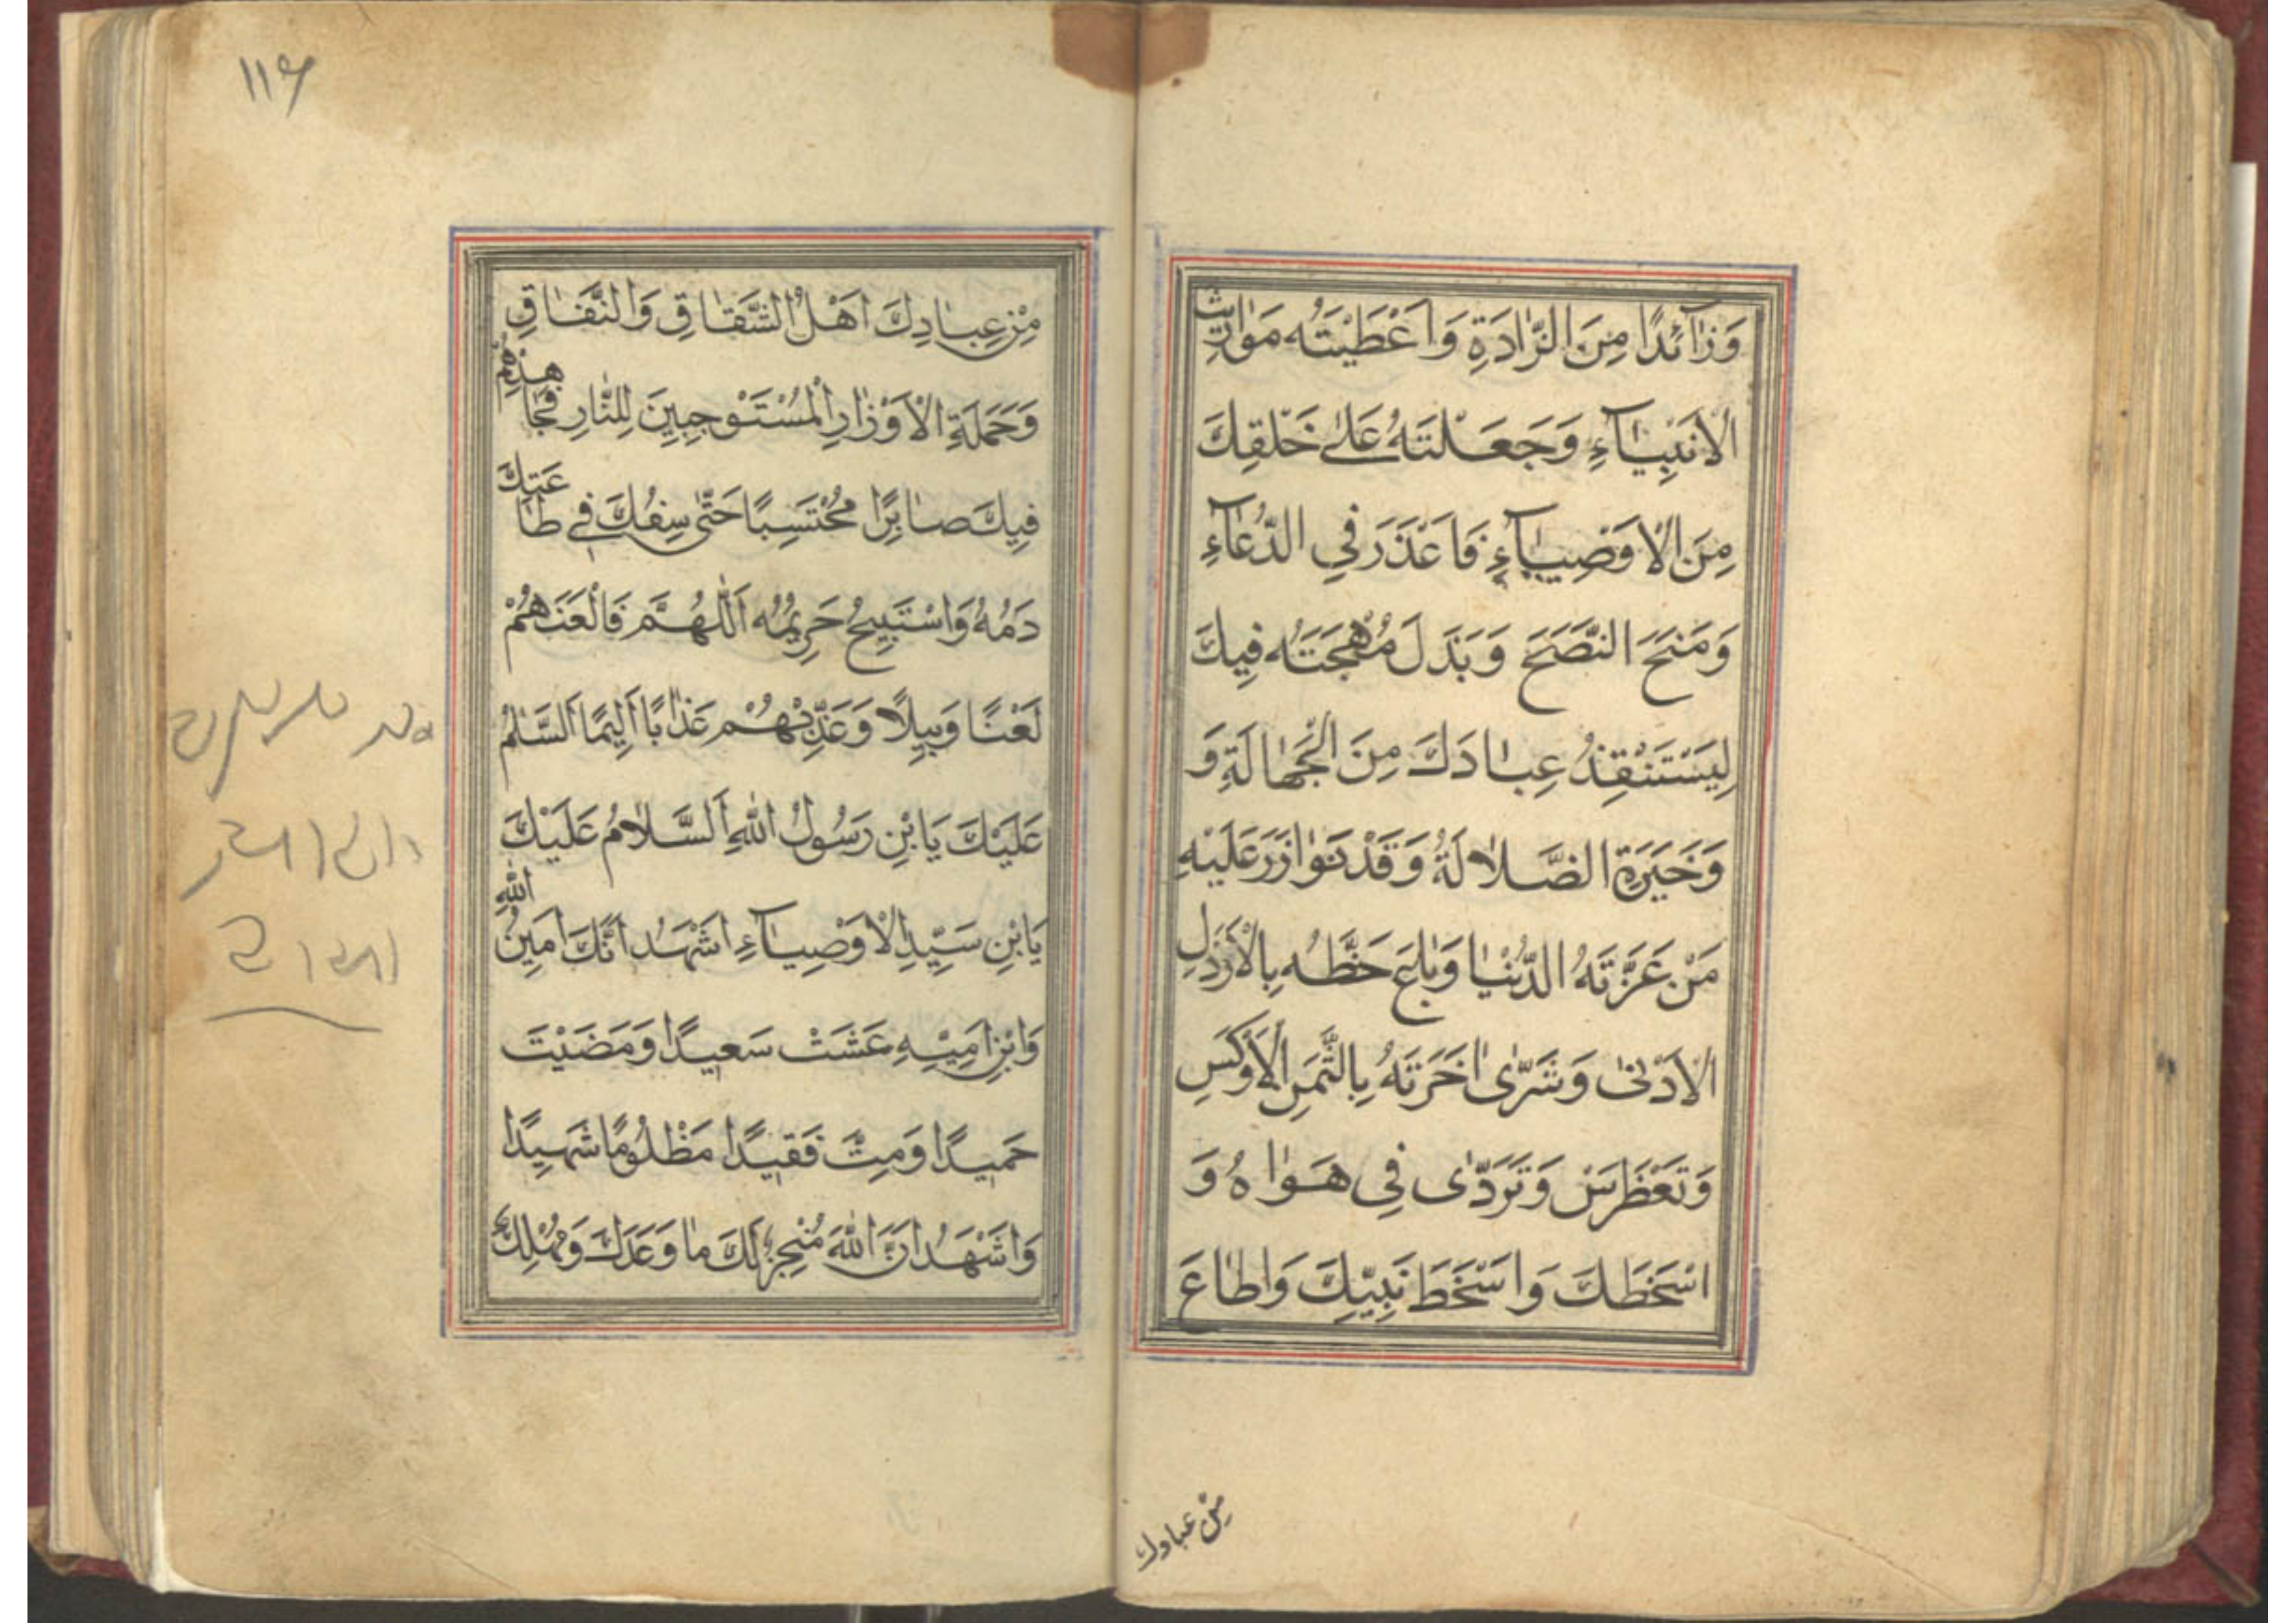 وَزٰآئدًا مِنَ الزّٰادَةِ وَاَعْطَيْتَهُ مَوٰارِيثَ
الْاَنْبِيٰآءِ وَجَعَلْتَهُ عَلىٰ خَلْقِكَ
مِنَ الْاَوْصِيٰآءِ فَاَعْذَرَ فِي الدُّعٰآءِ
وَمَنَحَ النُّصَحَ وَبَذَلَ مُهْجَتَهُ فِيكَ
لِيَسْتَنْقِذُ عِبٰادَكَ مِنَ الْجَهٰالَةِ وَ
وَحَيَرَةِ الضَّلاٰلَةُ وَقَدْ تَوٰازَرَ عَلَيْهِ
مَنْ غَرَّتَهُ الدُّنْيٰا وَبٰاعَ حَظَّهُ بِالْاَرْذَلِ
الْاَدْنىٰ وَشَرىٰ اٰخَرَتَهُ بِالثَّمَنِ الْاَوْكَسِ
وَتَغَطْرَسَ وَتَرَدّٰى فِي هَوٰاهُ وَ
اسْخَطَكَ وَاسْخَطَ نَبِيّكَ وَاَطٰاعَ
من عبادك
١١۶
مِنْ عِبٰادِكَ اَهْلُ الشَّقٰاقِ وَالنَّفٰاقِ
وَحَمَلَةِ الْاَوْزٰارِ الْمُسْتَوْجِبِينَ لِلنّٰارِ فَجٰاهَدَهُمْ
فِيكَ صٰابِرًا مُحْتَسِبًا حَتّٰى سِفُكَ فِي طٰاعَتِكَ
دَمُهُ وَاسْتَبِيحُ حَرِيمُهُ اَللّٰهُمَّ فَالْعَنْهُمْ
لَعْنًا وَبِيلًا وَعَذِّبْهُمْ عَذٰابًا اَلِيمًا اَلسَّلٰمُ
عَلَيْكَ يَابْنِ رَسُولُ اللهِ اَلسَّلاٰمُ عَلَيْكَ
يَابْنِ سَيِّدِ الْاَوْصِيٰآءِ اَشْهَدُ اَنَّكَ اَمِينُ اللهِ
وَابْنِ اَمِيْنِهِ عَشَتْ سَعِيدًا وَمَضَيْتَ
حَمِيدًا وَمِتَّ فَقِيدًا مَظْلُومًا شَهِيدًا
وَاَشْهَدُ اَنَّ اللهَ مُنْجِزٌ لَكَ مٰا وَعَدَكَ وَمُهْلِكُ